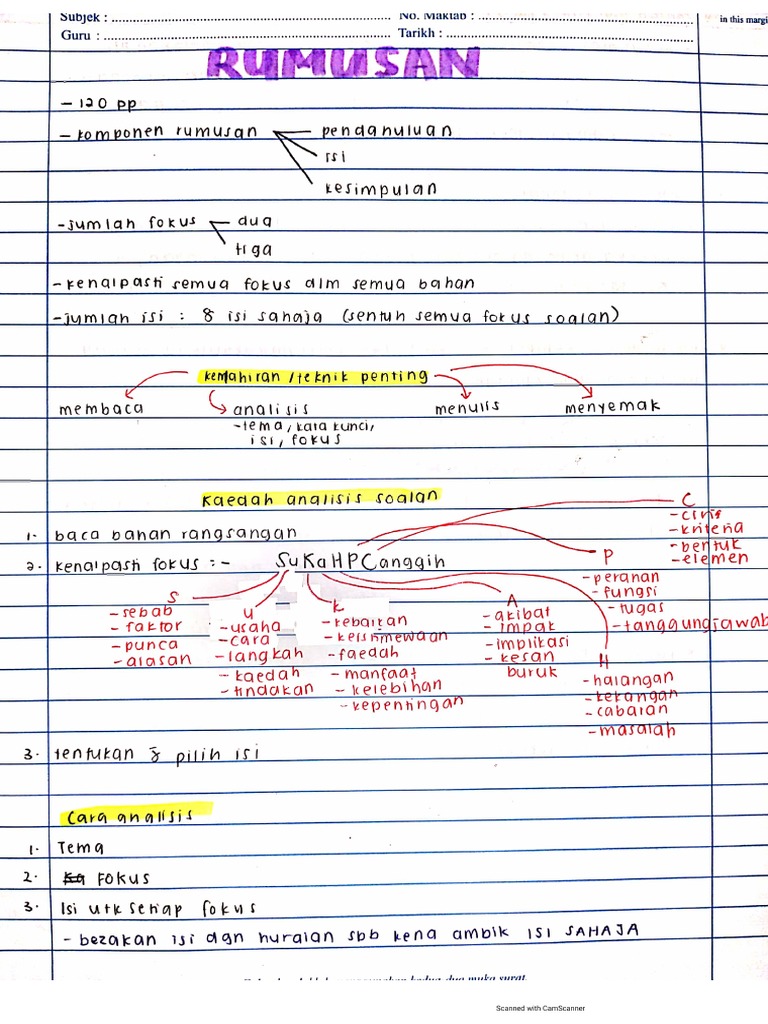 Subjek : ........ No. Maktab : ........ in this margi
Guru : ........ Tarikh : ........
RUMUSAN
- 120 pp
- komponen rumusan pendahuluan
isi
kesimpulan
- jumlah fokus dua
tiga
- kenalpasti semua fokus dlm semua bahan
- jumlah isi : 8 isi sahaja (sentuh semua fokus soalan)
kemahiran / teknik penting
membaca analisis menulis menyemak
- tema, kata kunci,
isi, fokus
kaedah analisis soalan
1. baca bahan rangsangan
2. kenalpasti fokus :- SuKaHPCanggih
C
- ciri²
- kriteria
- bentuk
- elemen
P
- peranan
- fungsi
- tugas
- tanggungjawab
S
- sebab
- faktor
- punca
- alasan
U
- usaha
- cara
- langkah
- kaedah
- tindakan
K
- kebaikan
- keistimewaan
- faedah
- manfaat
- kelebihan
- kepentingan
A
- akibat
- impak
- implikasi
- kesan
buruk
H
- halangan
- kekangan
- cabaran
- masalah
3. tentukan & pilih isi
Cara analisis
1. Tema
2. FOKUS
3. Isi utk setiap fokus
- bezakan isi dgn huraian sbb kena ambik ISI SAHAJA
kedua-dua muka surat.
Scanned with CamScanner